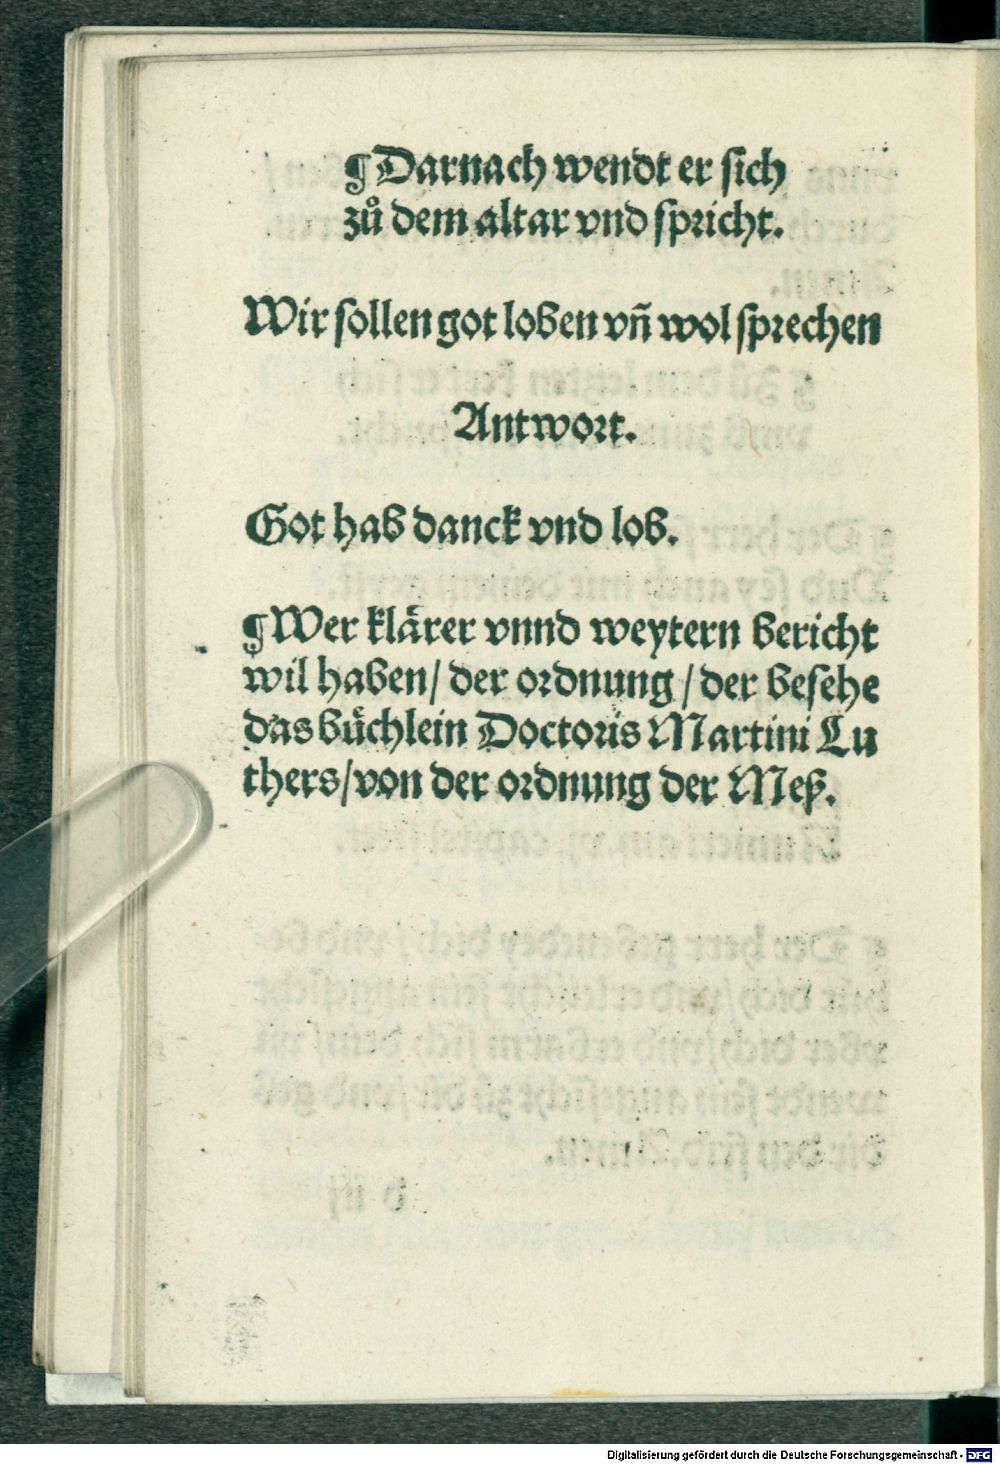 ¶ Darnach wendt er sich
zů dem altar vnd spricht.
Wir sollen got loben vn̄ wol sprechen
Antwort.
Got hab danck vnd lob.
¶ Wer klårer vnnd weytern bericht
wil haben/ der ordnung / der besehe
das bůchlein Doctoris Martini Lu
thers/von der ordnung der Meß.
Digitalisierung gefördert durch die Deutsche Forschungsgemeinschaft - DFG